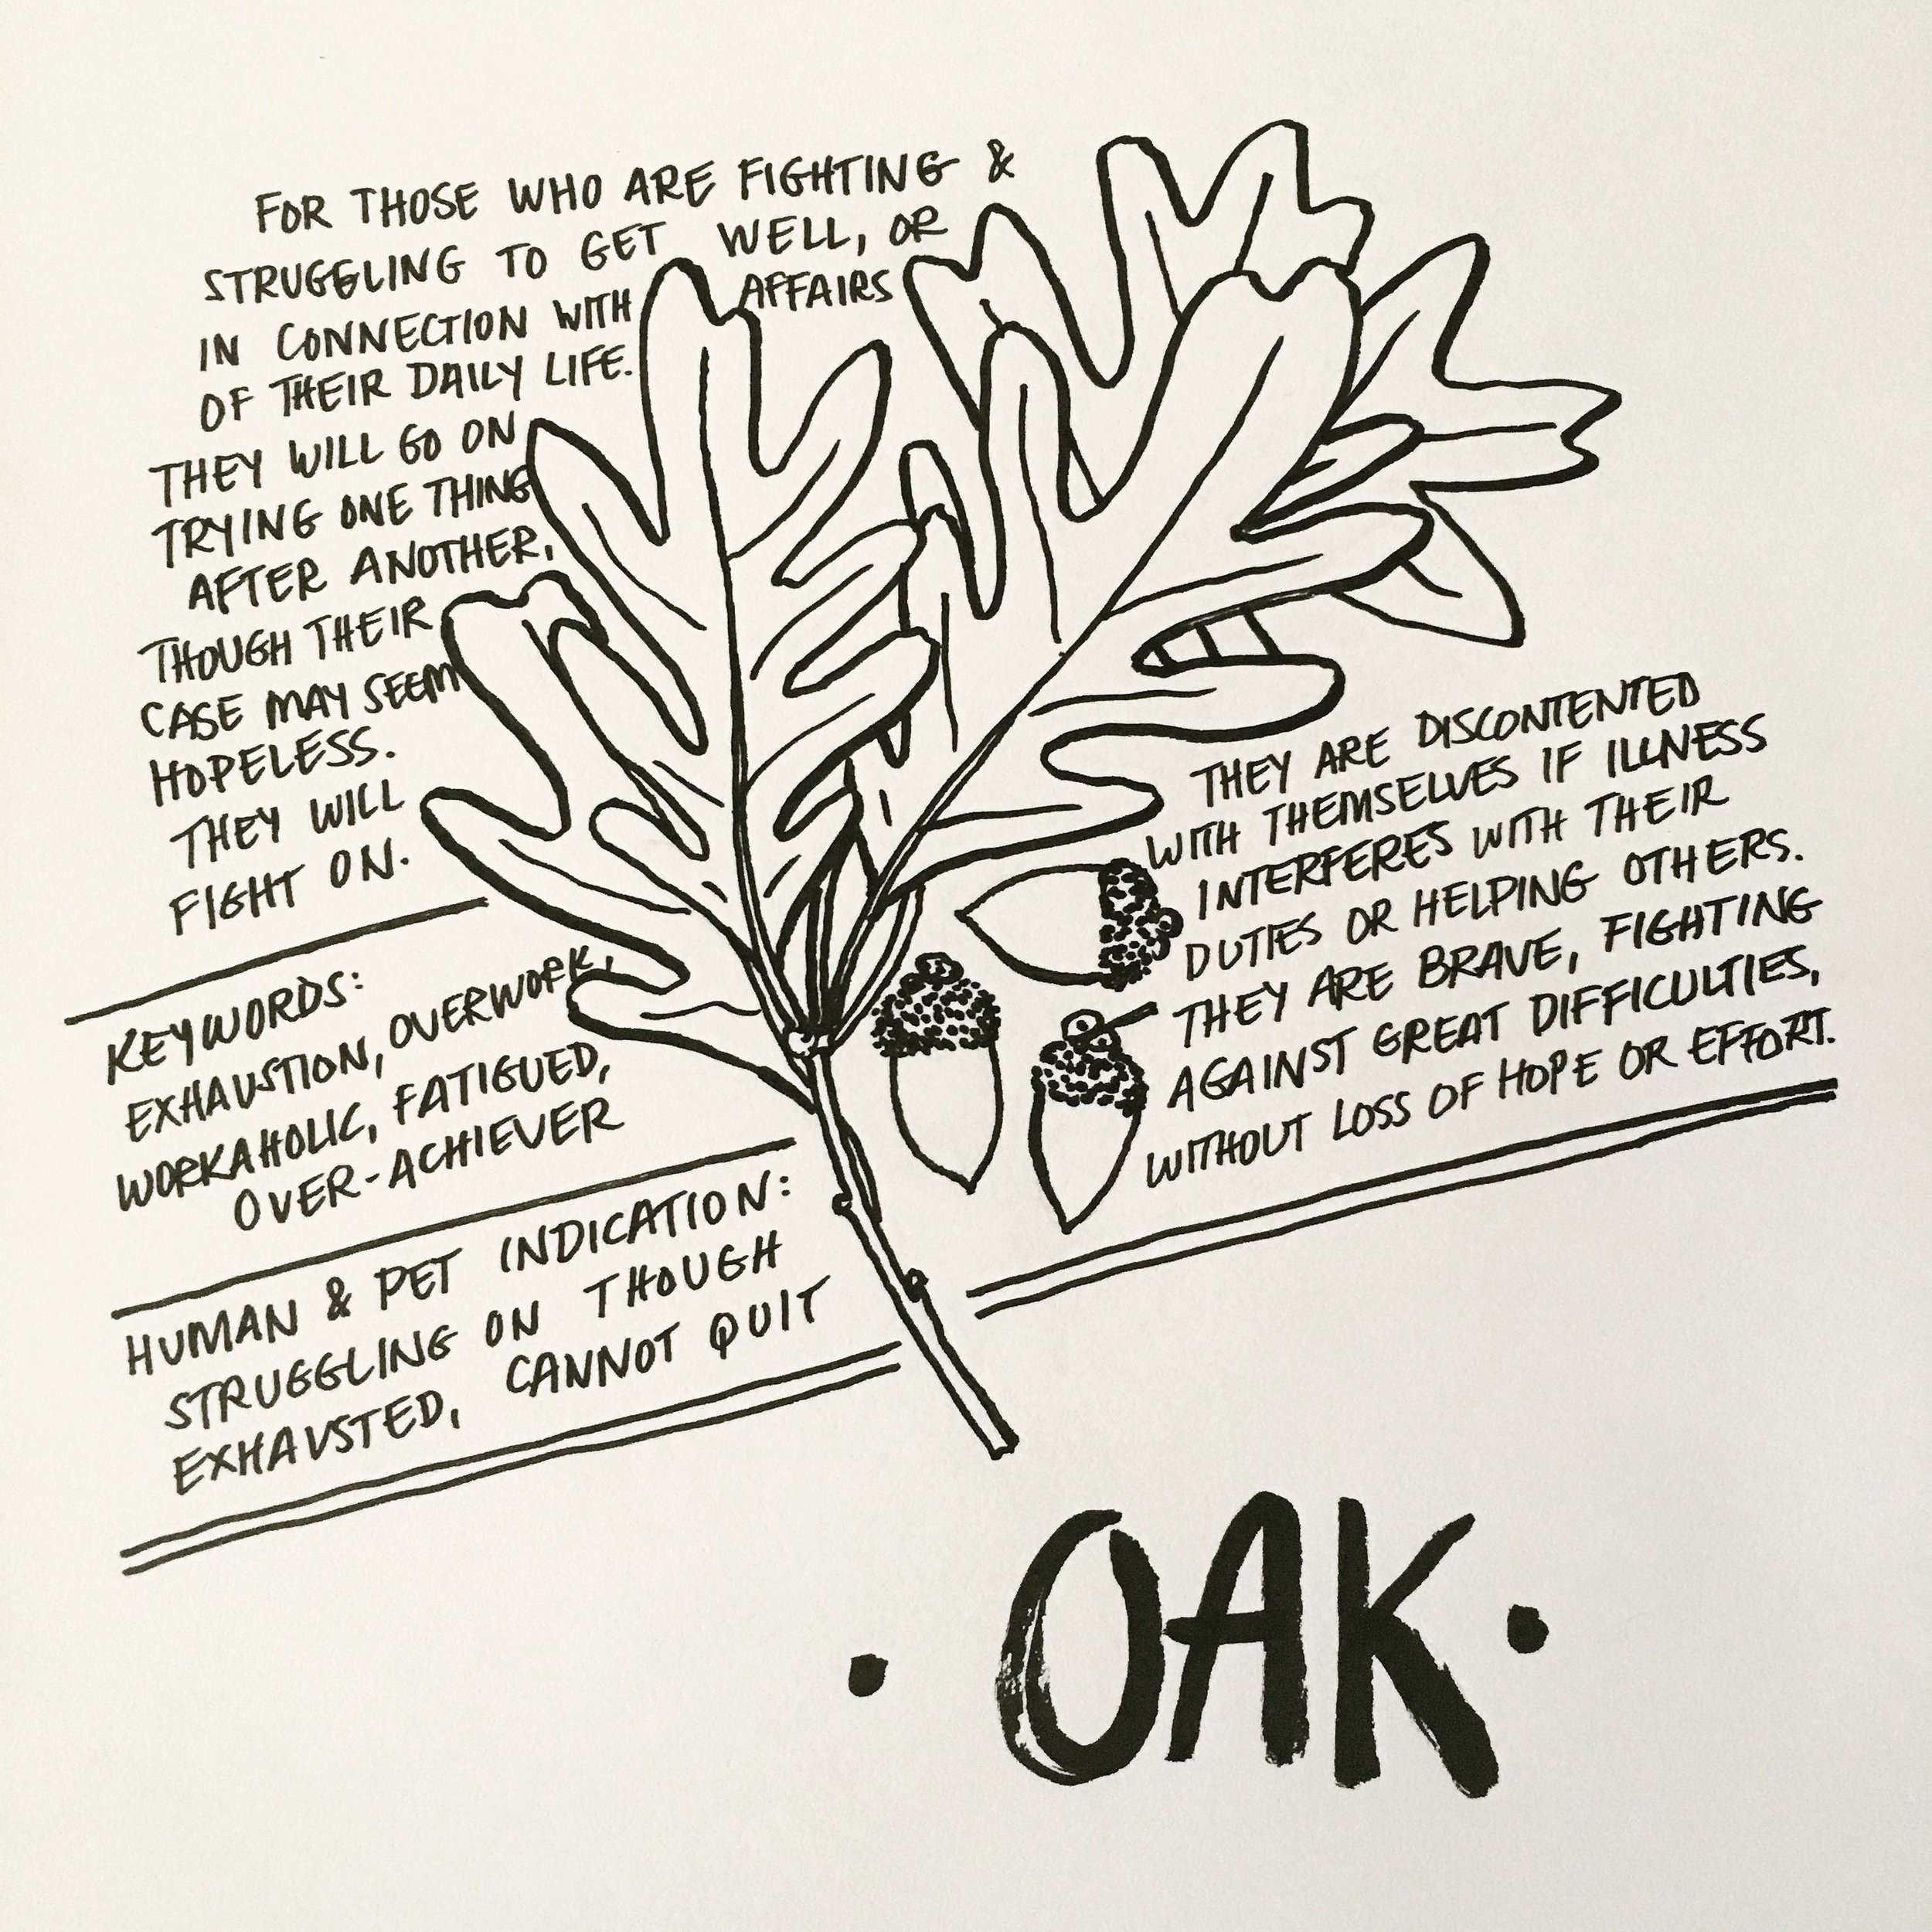 FOR THOSE WHO ARE FIGHTING &
STRUGGLING TO GET WELL, OR
IN CONNECTION WITH AFFAIRS
OF THEIR DAILY LIFE.
THEY WILL GO ON
TRYING ONE THING
AFTER ANOTHER,
THOUGH THEIR
CASE MAY SEEM
HOPELESS.
THEY WILL
FIGHT ON.
KEYWORDS:
EXHAUSTION, OVERWORK,
WORKAHOLIC, FATIGUED,
OVER-ACHIEVER
HUMAN & PET INDICATION:
STRUGGLING ON THOUGH
EXHAUSTED, CANNOT QUIT
THEY ARE DISCONTENTED
WITH THEMSELVES IF ILLNESS
INTERFERES WITH THEIR
DUTIES OR HELPING OTHERS.
THEY ARE BRAVE, FIGHTING
AGAINST GREAT DIFFICULTIES,
WITHOUT LOSS OF HOPE OR EFFORT.
• OAK •